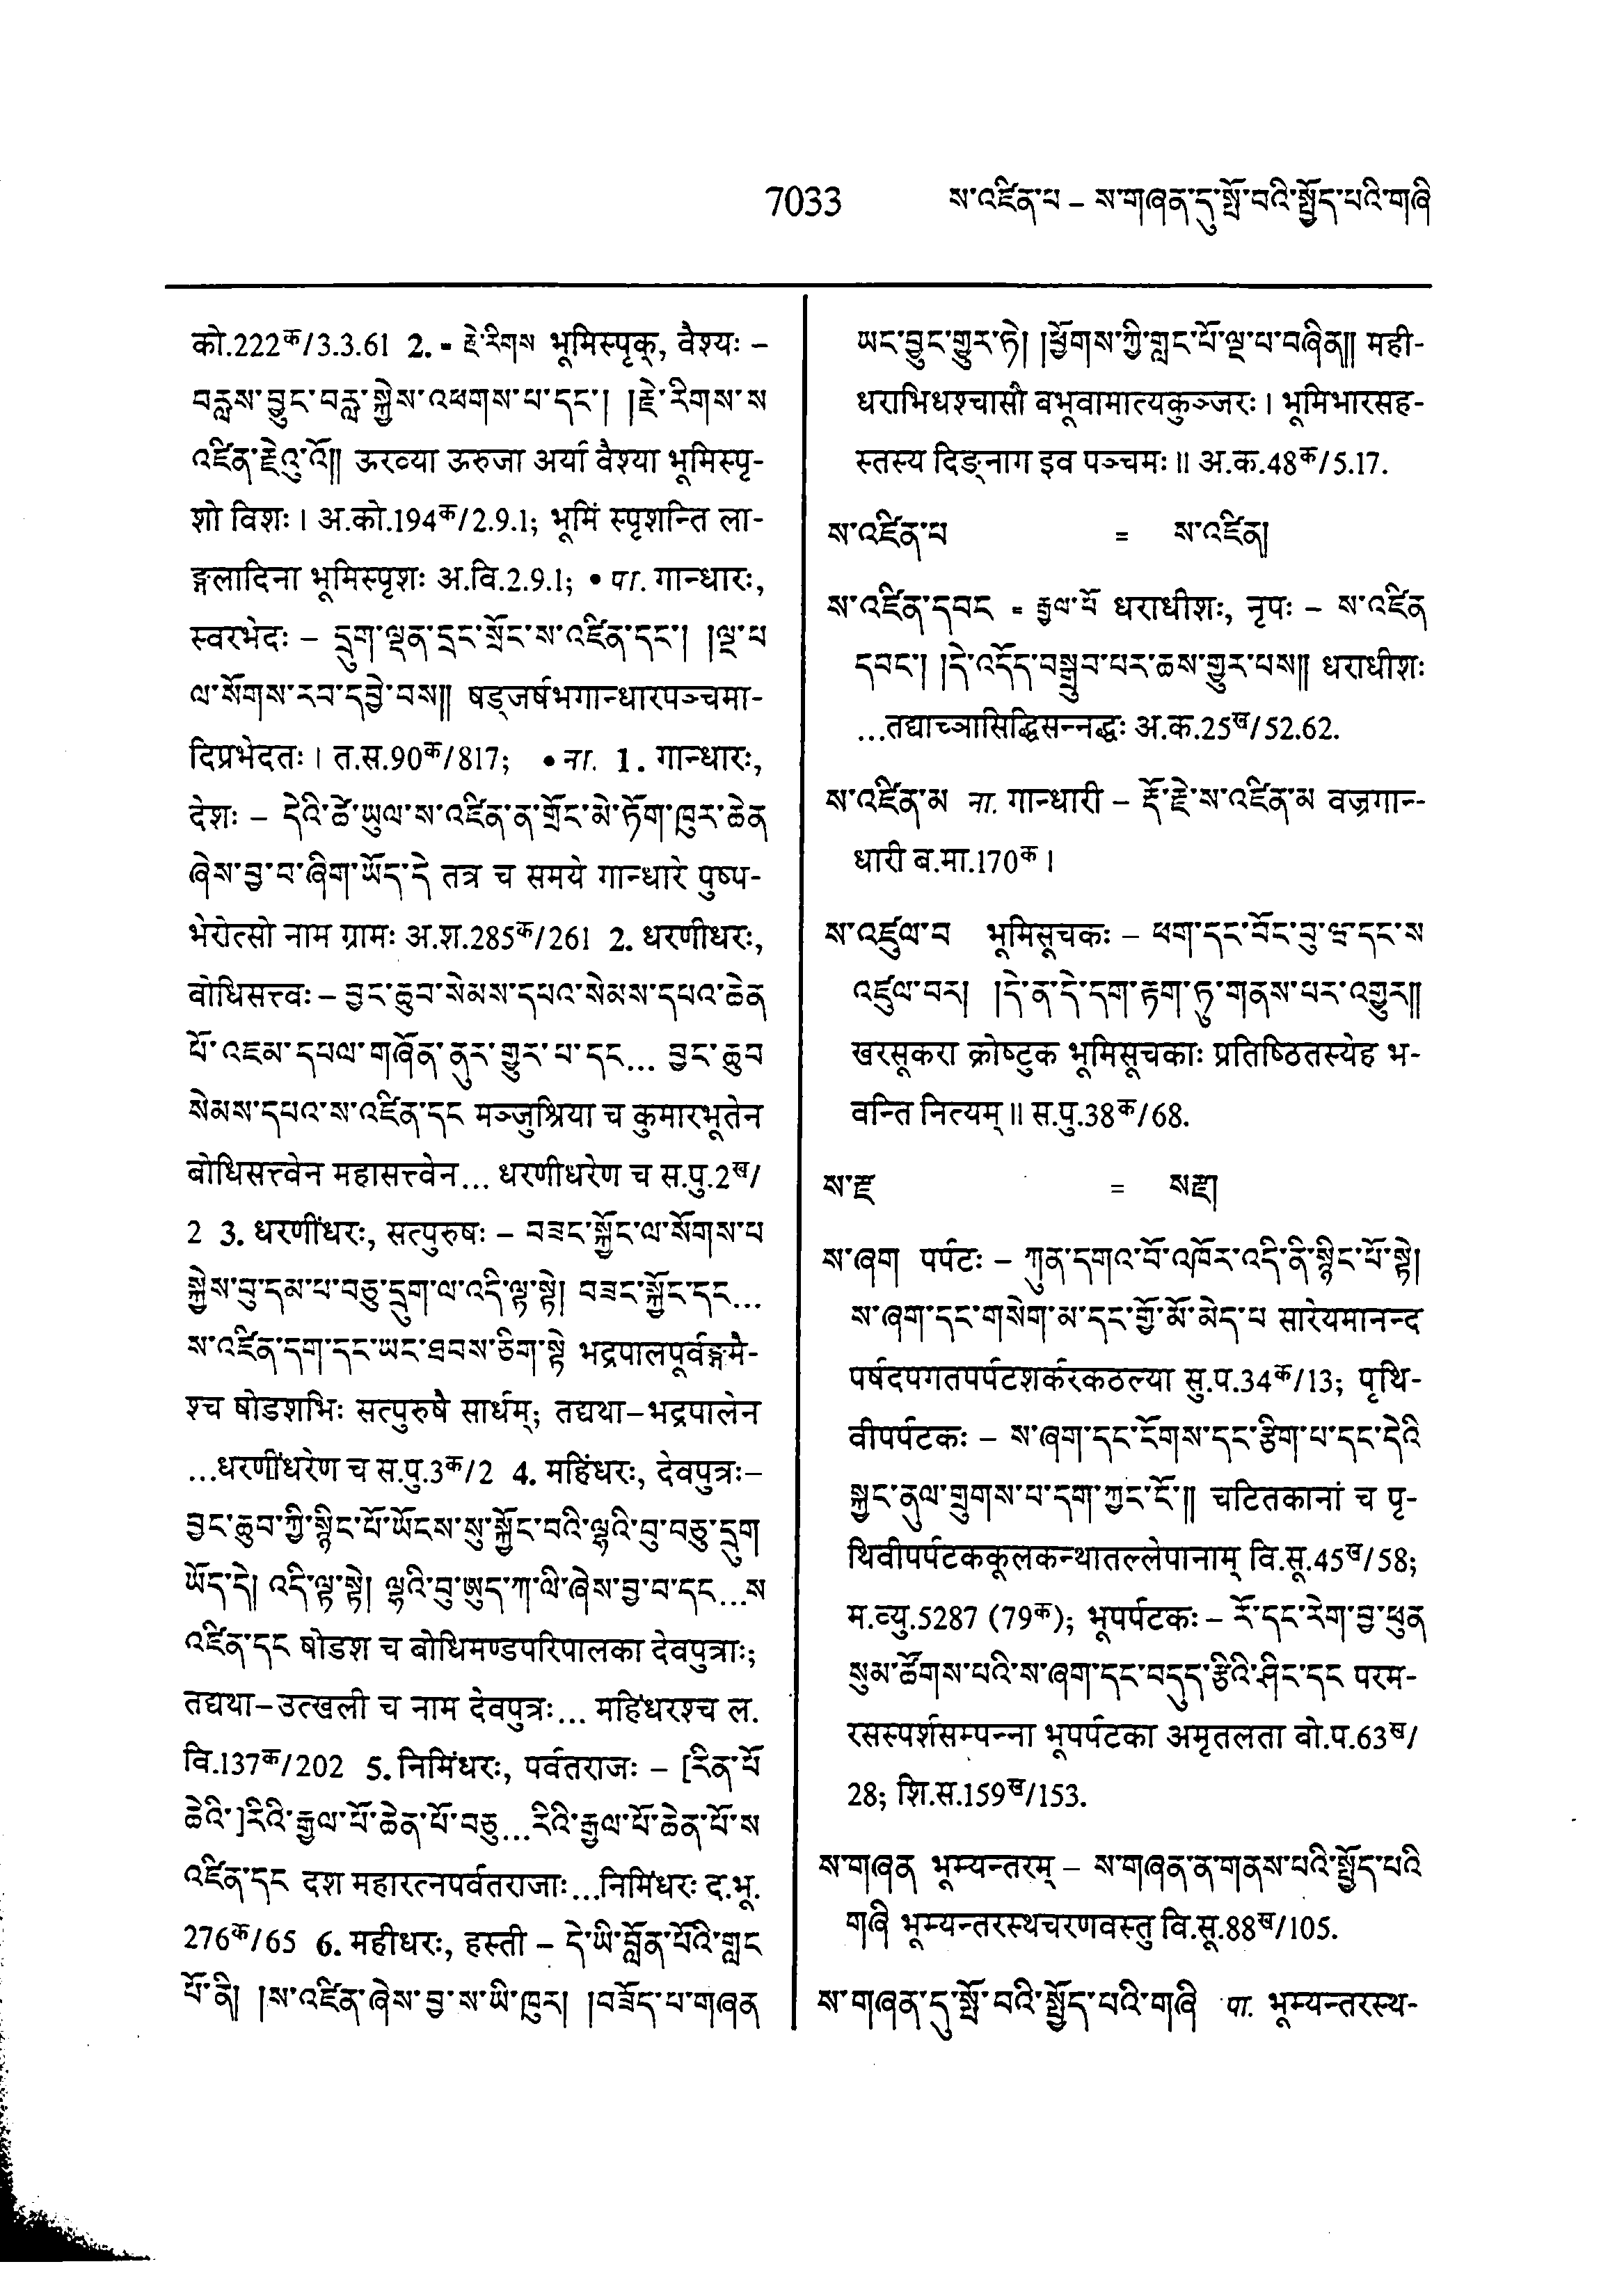 7033 ས་འཛིན་པ – ས་གཞན་དུ་སྤྲོ་བའི་སྤྱོད་པའི་གཞི
को.222क/3.3.61 2. = རྗེ་རིགས भूमिस्पृक्, वैश्यः –
བརླས་བྱུང་བརླ་སྐྱེས་འཕགས་པ་དང་། །རྗེ་རིགས་ས
འཛིན་རྗེའུ་འོ།། ऊरव्या ऊरुजा अर्या वैश्या भूमिस्पृ-
शो विशः । अ.को.194क/2.9.1; भूमिं स्पृशन्ति ला-
ङ्गलादिना भूमिस्पृशः अ.वि.2.9.1; • पा. गान्धारः,
स्वरभेदः – དྲུག་ལྡན་དྲང་སྲོང་ས་འཛིན་དང་། །ལྔ་པ
ལ་སོགས་རབ་དབྱེ་བས།། षड्जर्षभगान्धारपञ्चमा-
दिप्रभेदतः । त.स.90क/817; • ना. 1. गान्धारः,
देशः – དེའི་ཚེ་ཡུལ་ས་འཛིན་ན་གྲོང་མེ་ཏོག་ཁུར་ཆེན
ཞེས་བྱ་བ་ཞིག་ཡོད་དེ तत्र च समये गान्धारे पुष्प-
भेरोत्सो नाम ग्रामः अ.श.285क/261 2. धरणीधरः,
बोधिसत्त्वः – བྱང་ཆུབ་སེམས་དཔའ་སེམས་དཔའ་ཆེན
པོ་འཇམ་དཔལ་གཞོན་ནུར་གྱུར་པ་དང... བྱང་ཆུབ
སེམས་དཔའ་ས་འཛིན་དང मञ्जुश्रिया च कुमारभूतेन
बोधिसत्त्वेन महासत्त्वेन... धरणीधरेण च स.पु.2ख/
2 3. धरणींधरः, सत्पुरुषः – བཟང་སྐྱོང་ལ་སོགས་པ
སྐྱེས་བུ་དམ་པ་བཅུ་དྲུག་ལ་འདི་ལྟ་སྟེ། བཟང་སྐྱོང་དང...
ས་འཛིན་དག་དང་ཡང་ཐབས་ཅིག་སྟེ भद्रपालपूर्वङ्गमै-
श्च षोडशभिः सत्पुरुषै सार्धम्; तद्यथा–भद्रपालेन
...धरणींधरेण च स.पु.3क/2 4. महिंधरः, देवपुत्रः–
བྱང་ཆུབ་ཀྱི་སྙིང་པོ་ཡོངས་སུ་སྐྱོང་བའི་ལྷའི་བུ་བཅུ་དྲུག
ཡོད་དེ། འདི་ལྟ་སྟེ། ལྷའི་བུ་ཨུད་ཀ་ལི་ཞེས་བྱ་བ་དང...ས
འཛིན་དང षोडश च बोधिमण्डपरिपालका देवपुत्राः;
तद्यथा–उत्खली च नाम देवपुत्रः... महिंधरश्च ल.
वि.137क/202 5. निमिंधरः, पर्वतराजः – [རིན་པོ
ཆེའི་]རིའི་རྒྱལ་པོ་ཆེན་པོ་བཅུ...རིའི་རྒྱལ་པོ་ཆེན་པོ་ས
འཛིན་དང दश महारत्नपर्वतराजाः...निमिंधरः द.भू.
276क/65 6. महीधरः, हस्ती – དེ་ཡི་བློན་པོའི་གླང
པོ་ནི། །ས་འཛིན་ཞེས་བྱ་ས་ཡི་ཁུར། །བཟོད་པ་གཞན
ཡང་བྱུང་གྱུར་ཏེ། །ཕྱོགས་ཀྱི་གླང་པོ་ལྔ་པ་བཞིན།། मही-
धराभिधश्चासौ बभूवामात्यकुञ्जरः । भूमिभारसह-
स्तस्य दिङ्नाग इव पञ्चमः ॥ अ.क.48क/5.17.
ས་འཛིན་པ = ས་འཛིན།
ས་འཛིན་དབང = རྒྱལ་པོ धराधीशः, नृपः – ས་འཛིན
དབང་། །དེ་འདོད་བསྒྲུབ་པར་ཆས་གྱུར་པས།། धराधीशः
...तद्याच्ञासिद्धिसन्नद्धः अ.क.25ख/52.62.
ས་འཛིན་མ ना. गान्धारी – རྡོ་རྗེ་ས་འཛིན་མ वज्रगान-
धारी ब.मा.170क ।
ས་འཛུལ་བ भूमिसूचकः – ཕག་དང་བོང་བུ་ཝ་དང་ས
འཛུལ་བར། །དེ་ན་དེ་དག་རྟག་ཏུ་གནས་པར་འགྱུར།།
खरसूकरा क्रोष्टुक भूमिसूचकाः प्रतिष्ठितस्येह भ-
वन्ति नित्यम् ॥ स.पु.38क/68.
ས་རྫ = སརྫ།
ས་ཞག पर्पटः – ཀུན་དགའ་བོ་འཁོར་འདི་ནི་སྙིང་པོ་སྟེ།
ས་ཞག་དང་གསེག་མ་དང་གྱོ་མོ་མེད་པ सारेयमानन्द
पर्षदपगतपर्पटशर्करकठल्या सु.प.34क/13; पृथि-
वीपर्पटकः – ས་ཞག་དང་ངོགས་དང་རྩིག་པ་དང་དེའི
སྐྱང་ནུལ་གྲུགས་པ་དག་ཀྱང་ངོ་།། चटितकानां च पृ-
थिवीपर्पटककूलकन्थातल्लेपानाम् वि.सू.45ख/58;
म.व्यु.5287 (79क); भूपर्पटकः – རོ་དང་རེག་བྱ་ཕུན
སུམ་ཚོགས་པའི་ས་ཞག་དང་བདུད་རྩིའི་ཤིང་དང परम-
रसस्पर्शसम्पन्ना भूपर्पटका अमृतलता बो.प.63ख/
28; शि.स.159ख/153.
ས་གཞན भूम्यन्तरम् – ས་གཞན་ན་གནས་པའི་སྤྱོད་པའི
གཞི भूम्यन्तरस्थचरणवस्तु वि.सू.88ख/105.
ས་གཞན་དུ་སྤྲོ་བའི་སྤྱོད་པའི་གཞི पा. भूम्यन्तरस्थ-